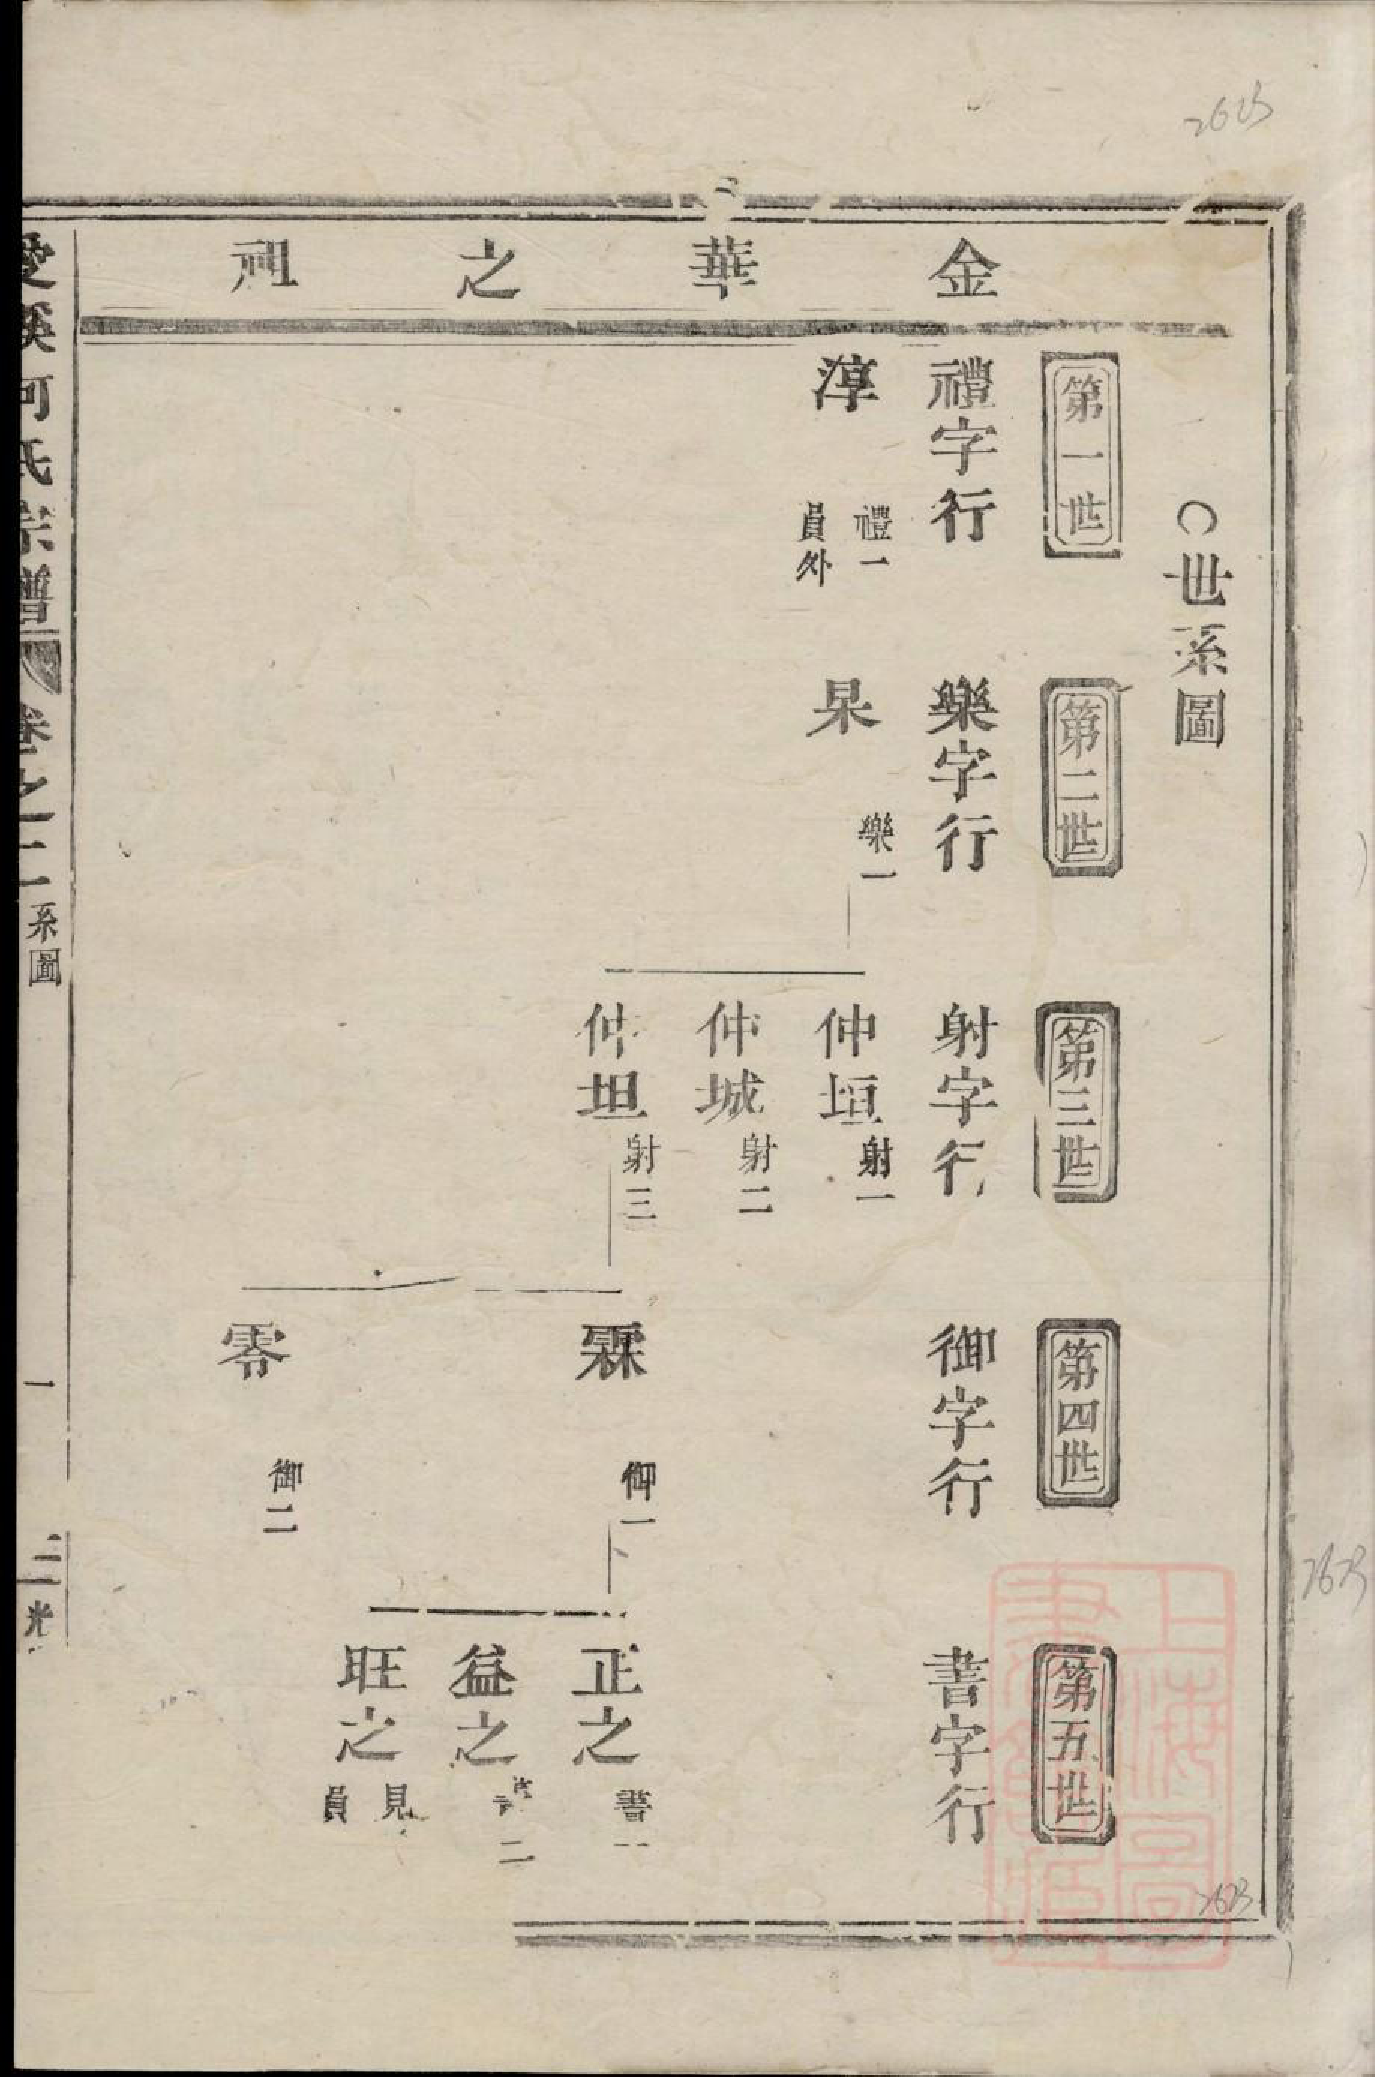 金華之祖
〇世系圖
第一世
禮字行
淳
禮一
員外
第二世
樂字行
杲
樂一
第三世
射字行
仲垣
射一
仲城
射二
仲坦
射三
第四世
御字行
霖
御一
零
御二
第五世
書字行
正之
書一
益之
二
旺之
見
員
愛溪何氏宗譜
卷之二
系圖
一
上海圖書館藏
2623
2623
2623